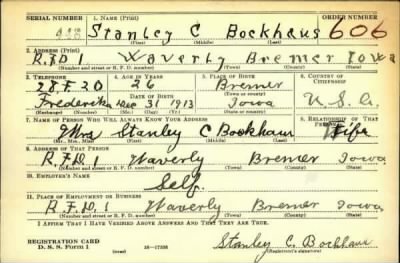 SERIAL NUMBER 1. NAME (Print) ORDER NUMBER
Stanley C Bockhaus 606
(First) (Middle) (Last)
2. ADDRESS (Print)
R.F.D. 1 Waverly Bremer Iowa
(Number and street or R. F. D. number) (Town) (County) (State)
3. TELEPHONE 4. AGE IN YEARS 5. PLACE OF BIRTH 6. COUNTRY OF CITIZENSHIP
28F20 26 Bremer
DATE OF BIRTH (Town or county)
Fredericka Dec 31 1913 Iowa U.S.A.
(Exchange) (Number) (Mo.) (Day) (Yr.) (State or country)
7. NAME OF PERSON WHO WILL ALWAYS KNOW YOUR ADDRESS 8. RELATIONSHIP OF THAT PERSON
Mrs Stanley C Bockhaus Wife
(Mr., Mrs., Miss) (First) (Middle) (Last)
9. ADDRESS OF THAT PERSON
R.F.D. 1 Waverly Bremer Iowa
(Number and street or R. F. D. number) (Town) (County) (State)
10. EMPLOYER'S NAME
Self.
11. PLACE OF EMPLOYMENT OR BUSINESS
R.F.D. 1 Waverly Bremer Iowa
(Number and street or R. F. D. number) (Town) (County) (State)
I AFFIRM THAT I HAVE VERIFIED ABOVE ANSWERS AND THAT THEY ARE TRUE.
REGISTRATION CARD
D. S. S. Form 1 (over) Stanley C. Bockhaus
(Registrant's signature)